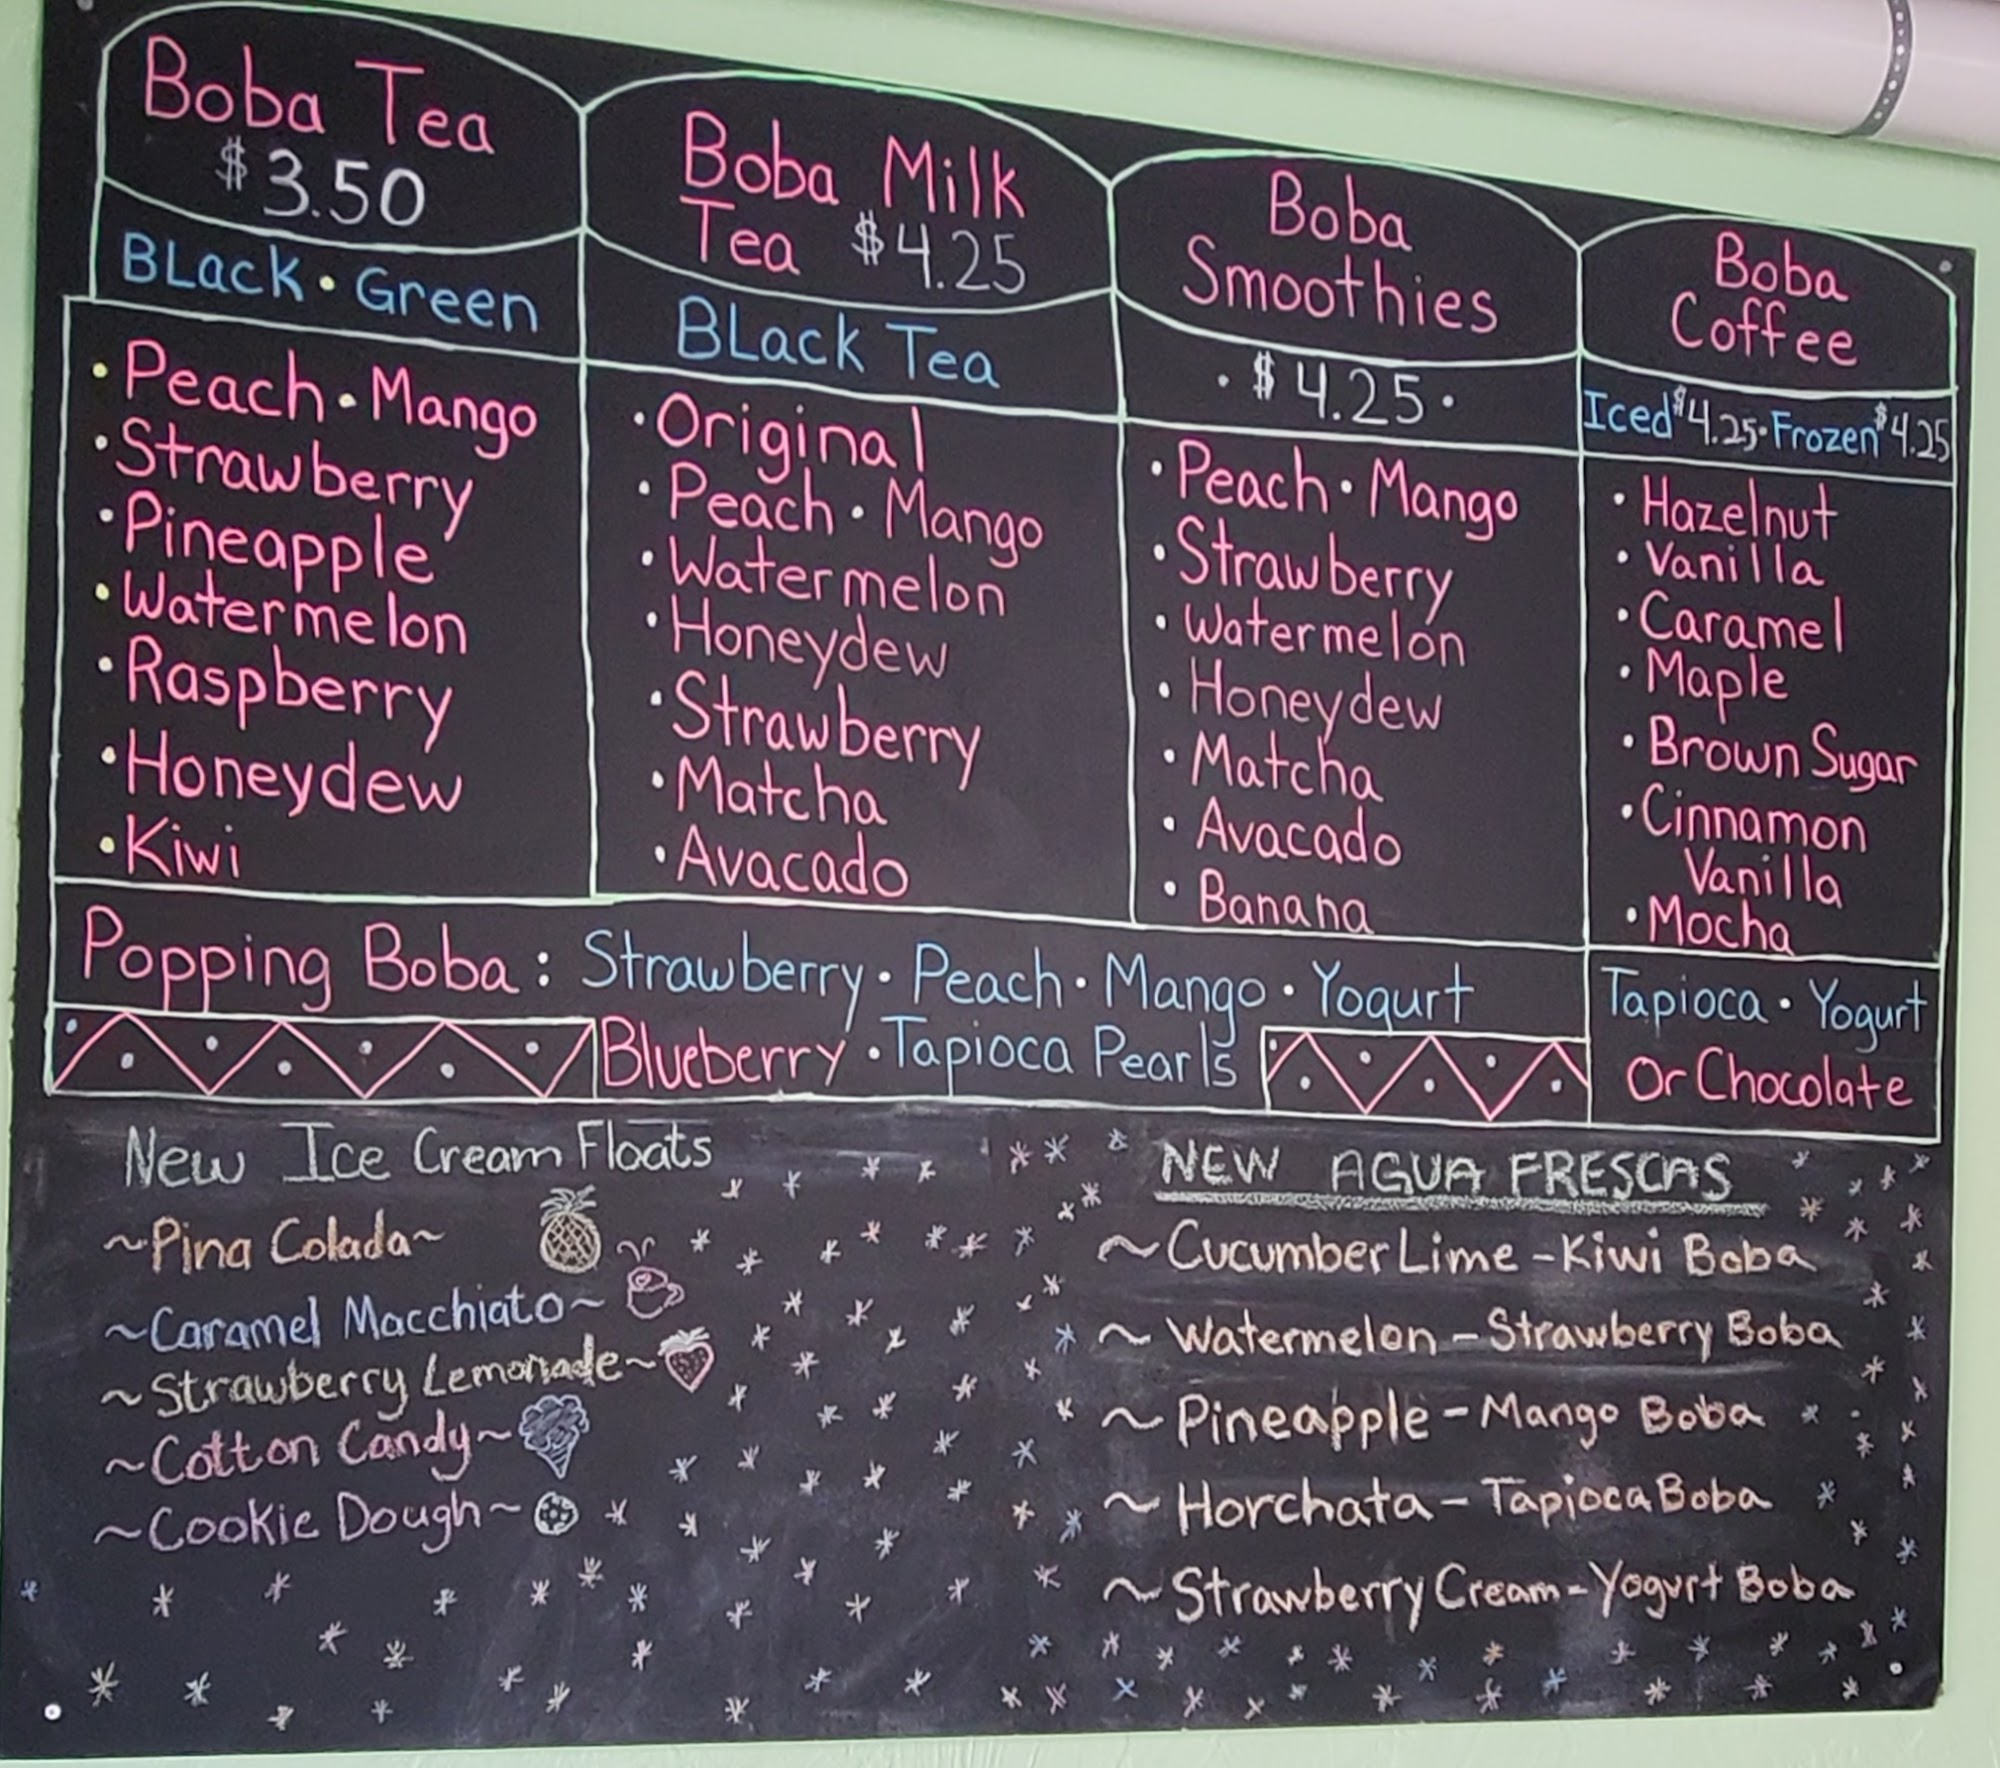 Boba Tea
$3.50
BLack • Green
• Peach • Mango
• Strawberry
• Pineapple
• Watermelon
• Raspberry
• Honeydew
• Kiwi
Boba Milk
Tea $4.25
BLack Tea
• Original
• Peach • Mango
• Watermelon
• Honeydew
• Strawberry
• Matcha
• Avacado
Boba
Smoothies
• $4.25 •
• Peach • Mango
• Strawberry
• Watermelon
• Honeydew
• Matcha
• Avacado
• Banana
Boba
Coffee
Iced $4.25 • Frozen $4.25
• Hazelnut
• Vanilla
• Caramel
• Maple
• Brown Sugar
• Cinnamon
Vanilla
• Mocha
Popping Boba : Strawberry • Peach • Mango • Yogurt
Blueberry • Tapioca Pearls
Tapioca • Yogurt
Or Chocolate
New Ice Cream Floats
~Pina Colada~
~Caramel Macchiato~
~Strawberry Lemonade~
~Cotton Candy~
~Cookie Dough~
NEW AGUA FRESCAS
~Cucumber Lime - Kiwi Boba
~ Watermelon - Strawberry Boba
~ Pineapple - Mango Boba
~ Horchata - Tapioca Boba
~ Strawberry Cream - Yogurt Boba